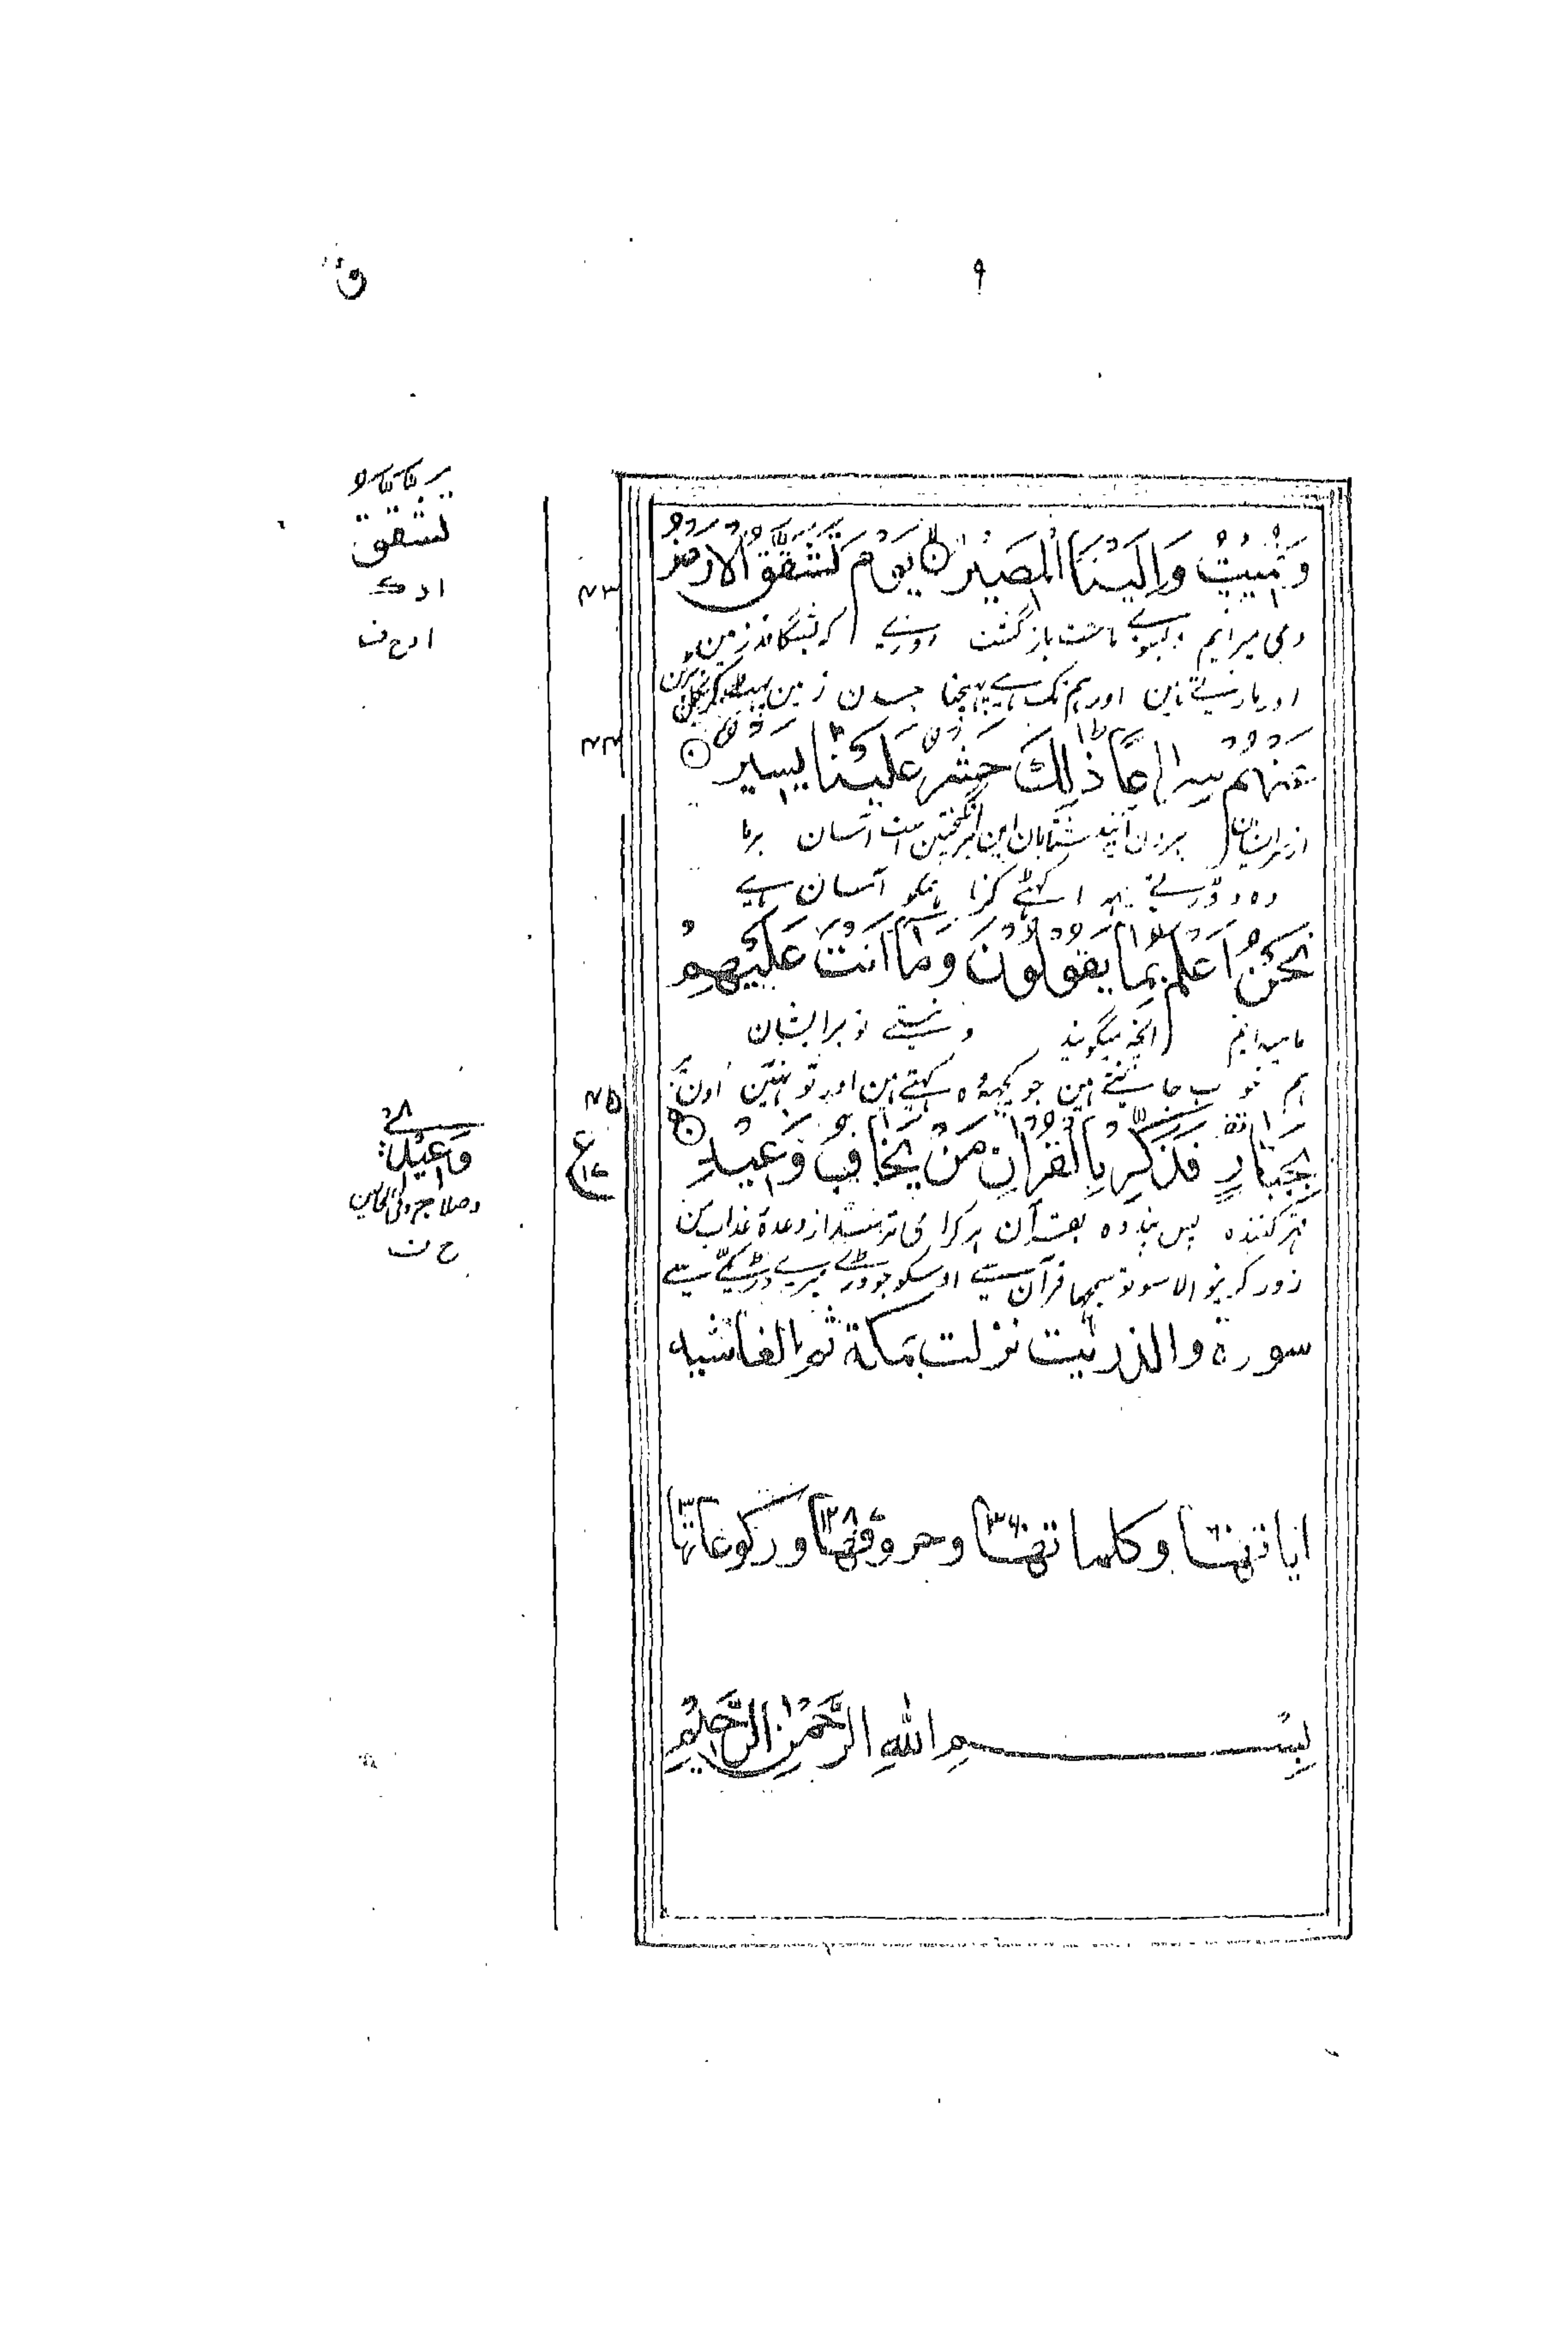 ۹
ق
وَنُمِيتُ وَاِلَيْنَا الْمَصِيْرُ يَوْمَ تَشَقَّقُ الْاَرْضُ
ومی میرانیم وبسوے ماست بازگشت روزیے کہ بشگافد زمین
اور مارتے ہین اور ہم تک ہے پہنچنا جس دن زمین پہٹ کر نکل پڑین
عَنْهُمْ سِرَاعًا ذٰلِكَ حَشْرٌ عَلَيْنَا يَسِيْرٌ
بیرون آیند شتابان این برانگیختن است آسان برما
وہ دوڑتے یہہ اکہٹے کرنا ہمکو آسان ہے
نَحْنُ اَعْلَمُ بِمَا يَقُوْلُوْنَ وَمَآ اَنْتَ عَلَيْهِمْ
ما میدانیم انچہ میگویند و نیستے تو برایشان
ہم خوب جانتے ہین جو کچہہ وہ کہتے ہین اور تو نہین اون پر
بِجَبَّارٍ فَذَكِّرْ بِالْقُرْاٰنِ مَنْ يَّخَافُ وَعِيْدِ
قہر کنندہ پس پند دہ بقرآن ہر کرا می ترسد از وعدۂ عذاب من
زور کرنیوالا سو تو سمجہا قرآن سے اوسکو جو ڈرے میرے ڈرکے سے
سورة والذريت نزلت بمكة ثم الغاشيه
اياتها ٦٠ وكلماتها ٣٦٠ وحروفها ١٢٨٧ وركوعاتها ٣
بِسْمِ اللهِ الرَّحْمٰنِ الرَّحِيْمِ
تشقق
ا د ك
ا د ح ن
وَعِيْدِ
ح ن
۴۳
۴۴
۴۵
ع